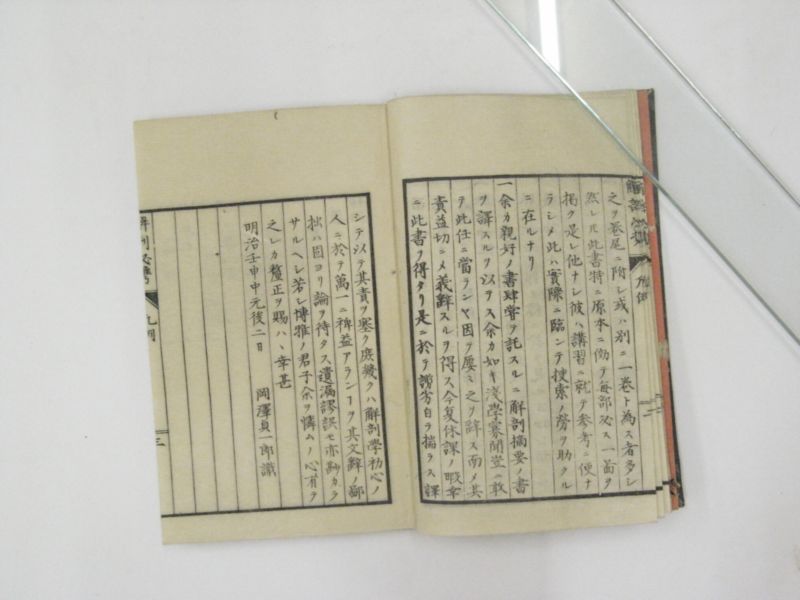 之ヲ巻尾ニ附シ或ハ別ニ一巻ト為ス者多シ
然レ𪜈此書特ニ原本ニ傚テ毎部必ス一圖ヲ
掲ク是レ他ナシ彼ハ講習ニ就テ参考ニ便ナ
ラシメ此ハ實際ニ臨ンテ捜索ノ勞ヲ助クル
ニ在ルナリ
一余カ親好ノ書肆嘗テ託スルニ解剖摘要ノ書
ヲ譯スルヲ以テス余カ如キ淺學寡聞豈ニ敢
テ此任ニ當ランヤ因テ屡ミ之ヲ辞ス而メ其
責益切ニメ義辞スルヲ得ス今夏休課ノ暇幸
ニ此書ヲ得タリ是ニ於テ謭劣自ラ揣ラス譯
シテ以テ其責ヲ塞ク庶幾クハ解剖學初心ノ
人ニ於テ萬一ニ裨益アランヿヲ其文辞ノ鄙
拙ハ固ヨリ論ヲ待タス遺漏謬誤モ亦尠カラ
サルヘシ若シ博雅ノ君子余ヲ憐ムノ心有テ
之レカ釐正ヲ賜ハヽ幸甚
明治壬申中元後二日
岡澤貞一郎識
凡例
三